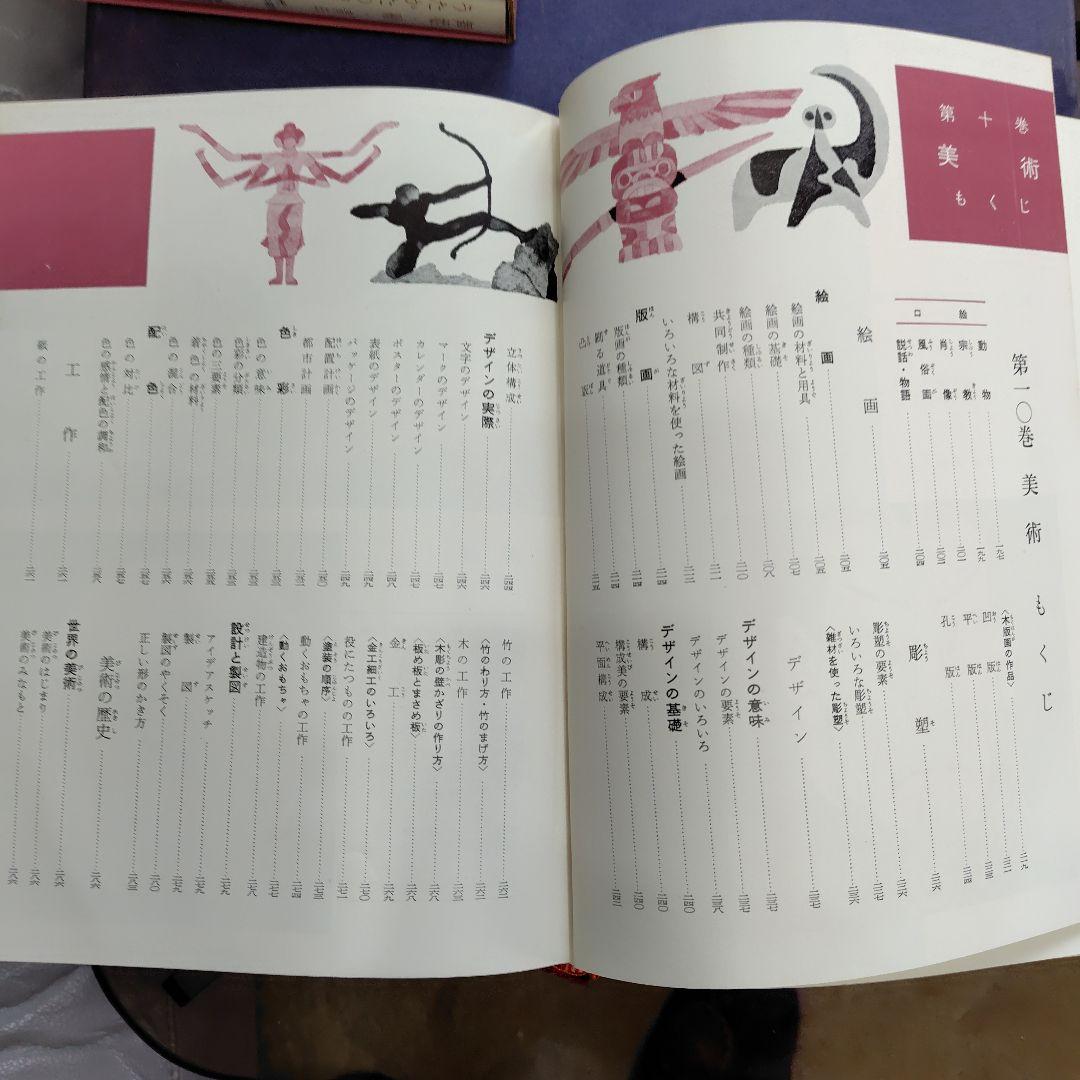 第十巻
美術
もくじ
第一〇巻 美術 もくじ
口絵
動物 一九七
宗教 一九九
肖像 二〇一
風俗画 二〇三
説話・物語 二〇四
絵画 二〇五
絵画 二〇五
絵画の材料と用具 二〇七
絵画の基礎 二〇八
絵画の種類 二一〇
共同制作 二一一
構図 二一二
いろいろな材料を使った絵画 二一四
版画 二一四
版画の種類 二一四
刷る道具
凸版 二一五
〈木版画の作品〉 二一九
凹版
平版 二三三
孔版 二三四
彫塑 二三六
彫塑の要素 二三六
いろいろな彫塑
〈雑材を使った彫塑〉 二三六
デザイン 二三七
デザインの意味 二三七
デザインの要素 二三七
デザインのいろいろ 二三八
デザインの基礎 二四〇
構成 二四〇
構成美の要素
平面構成 二四二
立体構成 二四四
デザインの実際 二四六
文字のデザイン 二四六
マークのデザイン 二四七
カレンダーのデザイン 二四八
ポスターのデザイン 二四八
表紙のデザイン 二四九
パッケージのデザイン 二四九
配置計画
都市計画
色彩
色の意味
色彩の分類
色の三要素
着色の材料
色の混合
配色 二五七
色の対比 二五七
色の感情と配色の調和 二五八
工作 二六一
紙の工作 二六一
竹の工作 二六二
〈竹のわり方・竹のまげ方〉 二六二
木の工作 二六三
〈木彫の壁かざりの作り方〉 二六八
〈板め板とまさめ板〉 二六八
金工 二六九
〈金工細工のいろいろ〉 二七〇
役にたつものの工作 二七一
〈塗装の順序〉 二七三
動くおもちゃの工作 二七四
〈動くおもちゃ〉 二七七
建造物の工作 二七八
設計と製図 二七九
アイデアスケッチ 二七九
製図 二七九
製図のやくそく 二八〇
正しい形のかき方 二八三
美術の歴史 二八六
世界の美術 二八六
美術のはじまり 二八六
美術のみなもと 二八六